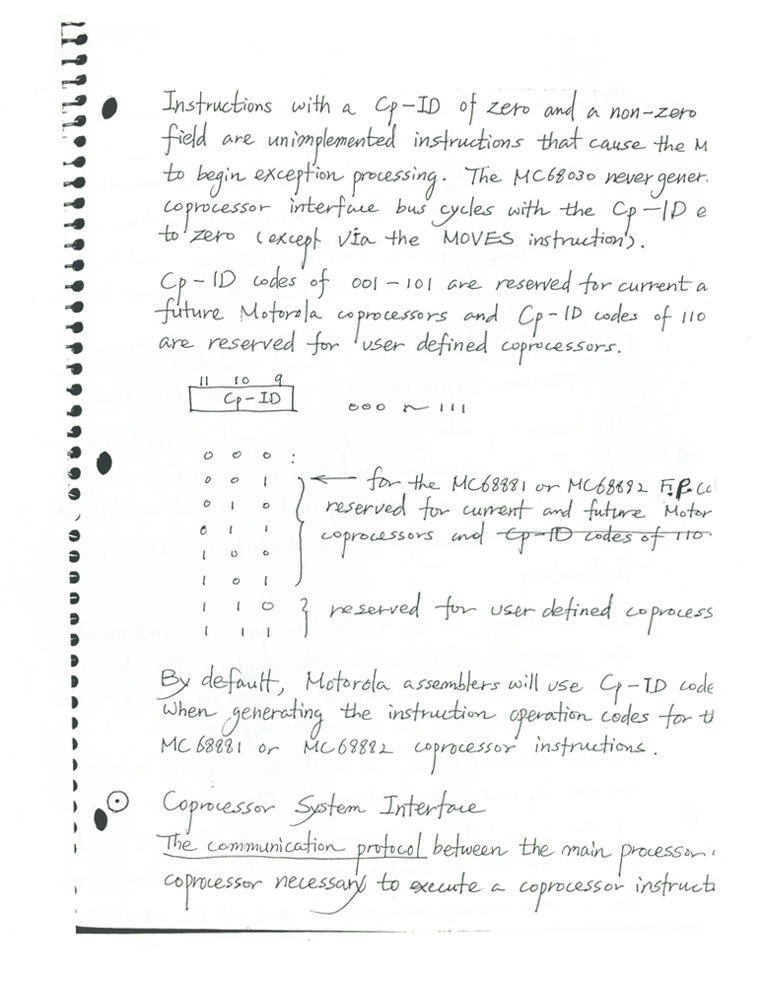 Instructions with a Cp-ID of zero and a non-zero
field are unimplemented instructions that cause the M
to begin exception processing. The MC68030 never gener.
coprocessor interface bus cycles with the Cp-ID e
to zero (except via the MOVES instruction).
Cp-ID codes of 001-101 are reserved for current a
future Motorola coprocessors and Cp-ID codes of 110
are reserved for user defined coprocessors.
11 10 9
Cp-ID 000 ~ 111
0 0 0 :
0 0 1 ← for the MC68881 or MC68882 F.P. Co
0 1 0 reserved for current and future Motor
0 1 1 coprocessors and Cp-ID codes of 110
1 0 0
1 0 1
1 1 0 } reserved for user defined coprocess
1 1 1
By default, Motorola assemblers will use Cp-ID code
when generating the instruction operation codes for t
MC68881 or MC68882 coprocessor instructions.
Coprocessor System Interface
The communication protocol between the main processor
coprocessor necessary to execute a coprocessor instructi